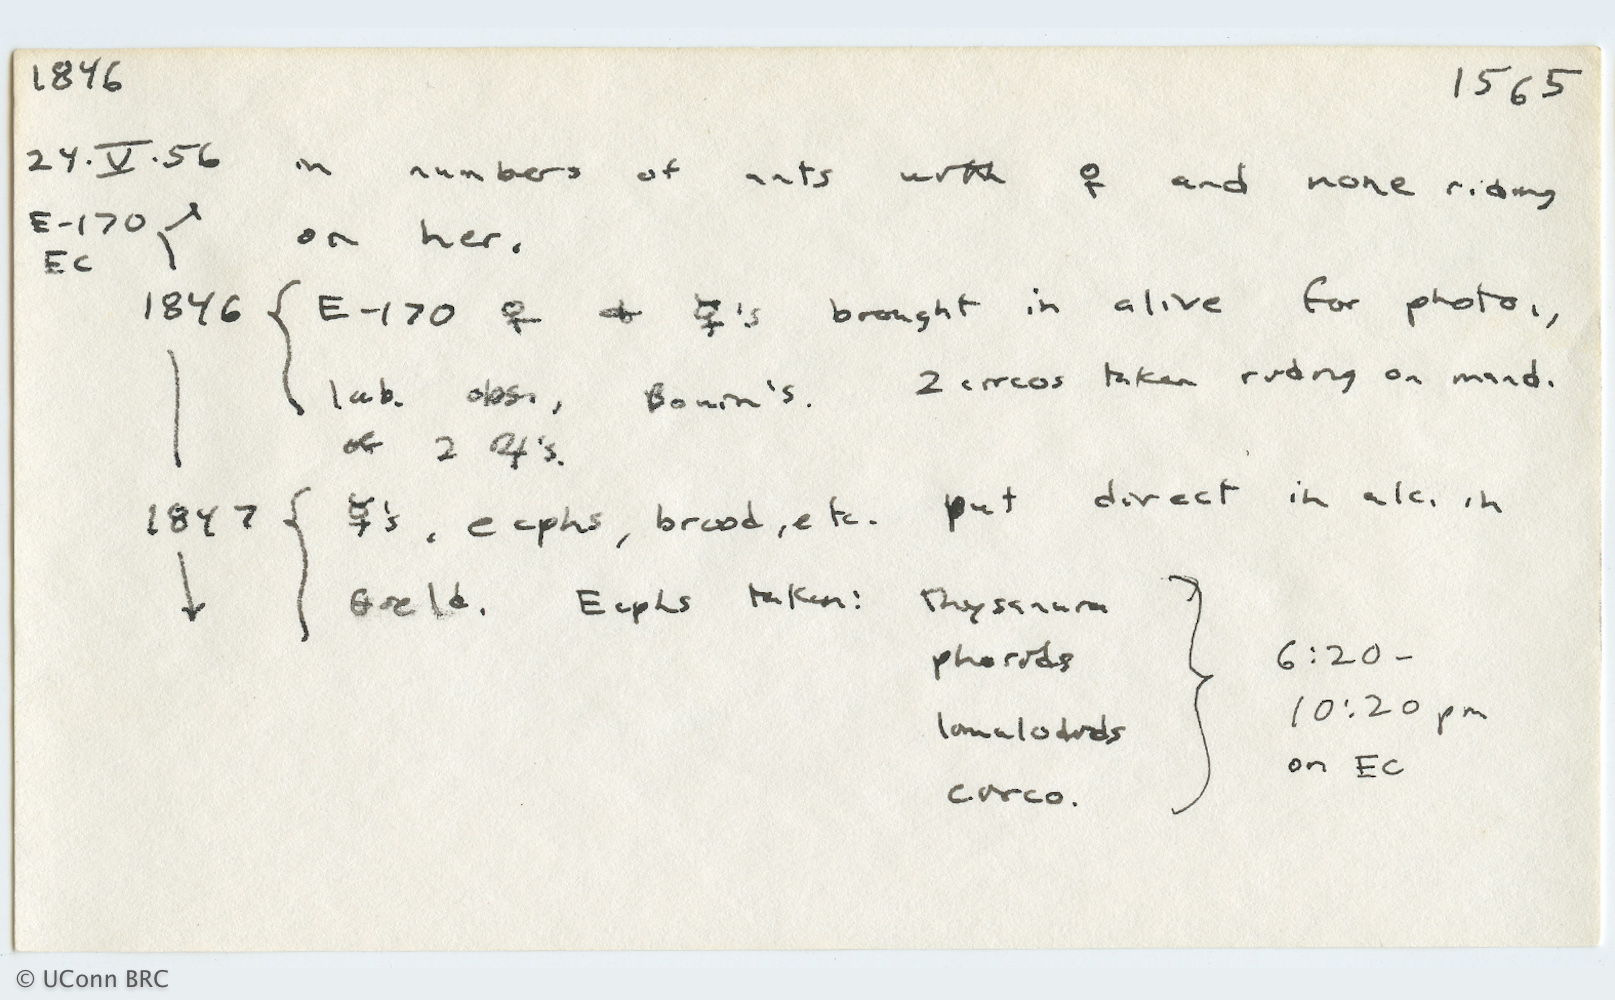 1846
1565
24.V.56 in numbers of ants with ♀ and none riding
E-170 on her.
Ec
1846 { E-170 ♀ & ☿'s brought in alive for photo.,
lab. obs., Bouin's. 2 circos taken riding on mand.
of 2 ♃'s.
1847 { ☿'s, ecphs, brood, etc. put direct in alc. in
field. Ecphs taken: Thysanura
phorids
lomalodids
circo.
6:20 -
10:20 pm
on Ec
© UConn BRC